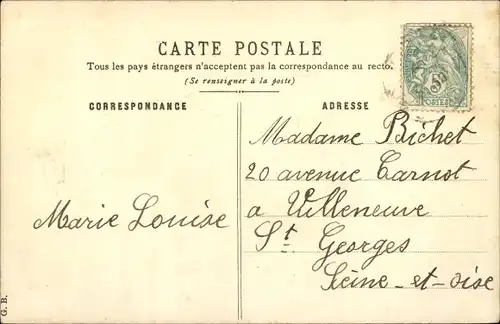 CARTE POSTALE
Tous les pays étrangers n'acceptent pas la correspondance au recto.
(Se renseigner à la poste)
CORRESPONDANCE
ADRESSE
Marie Louise
Madame Bichet
20 avenue Carnot
a Villeneuve
St Georges
Seine-et-oise
G. B.